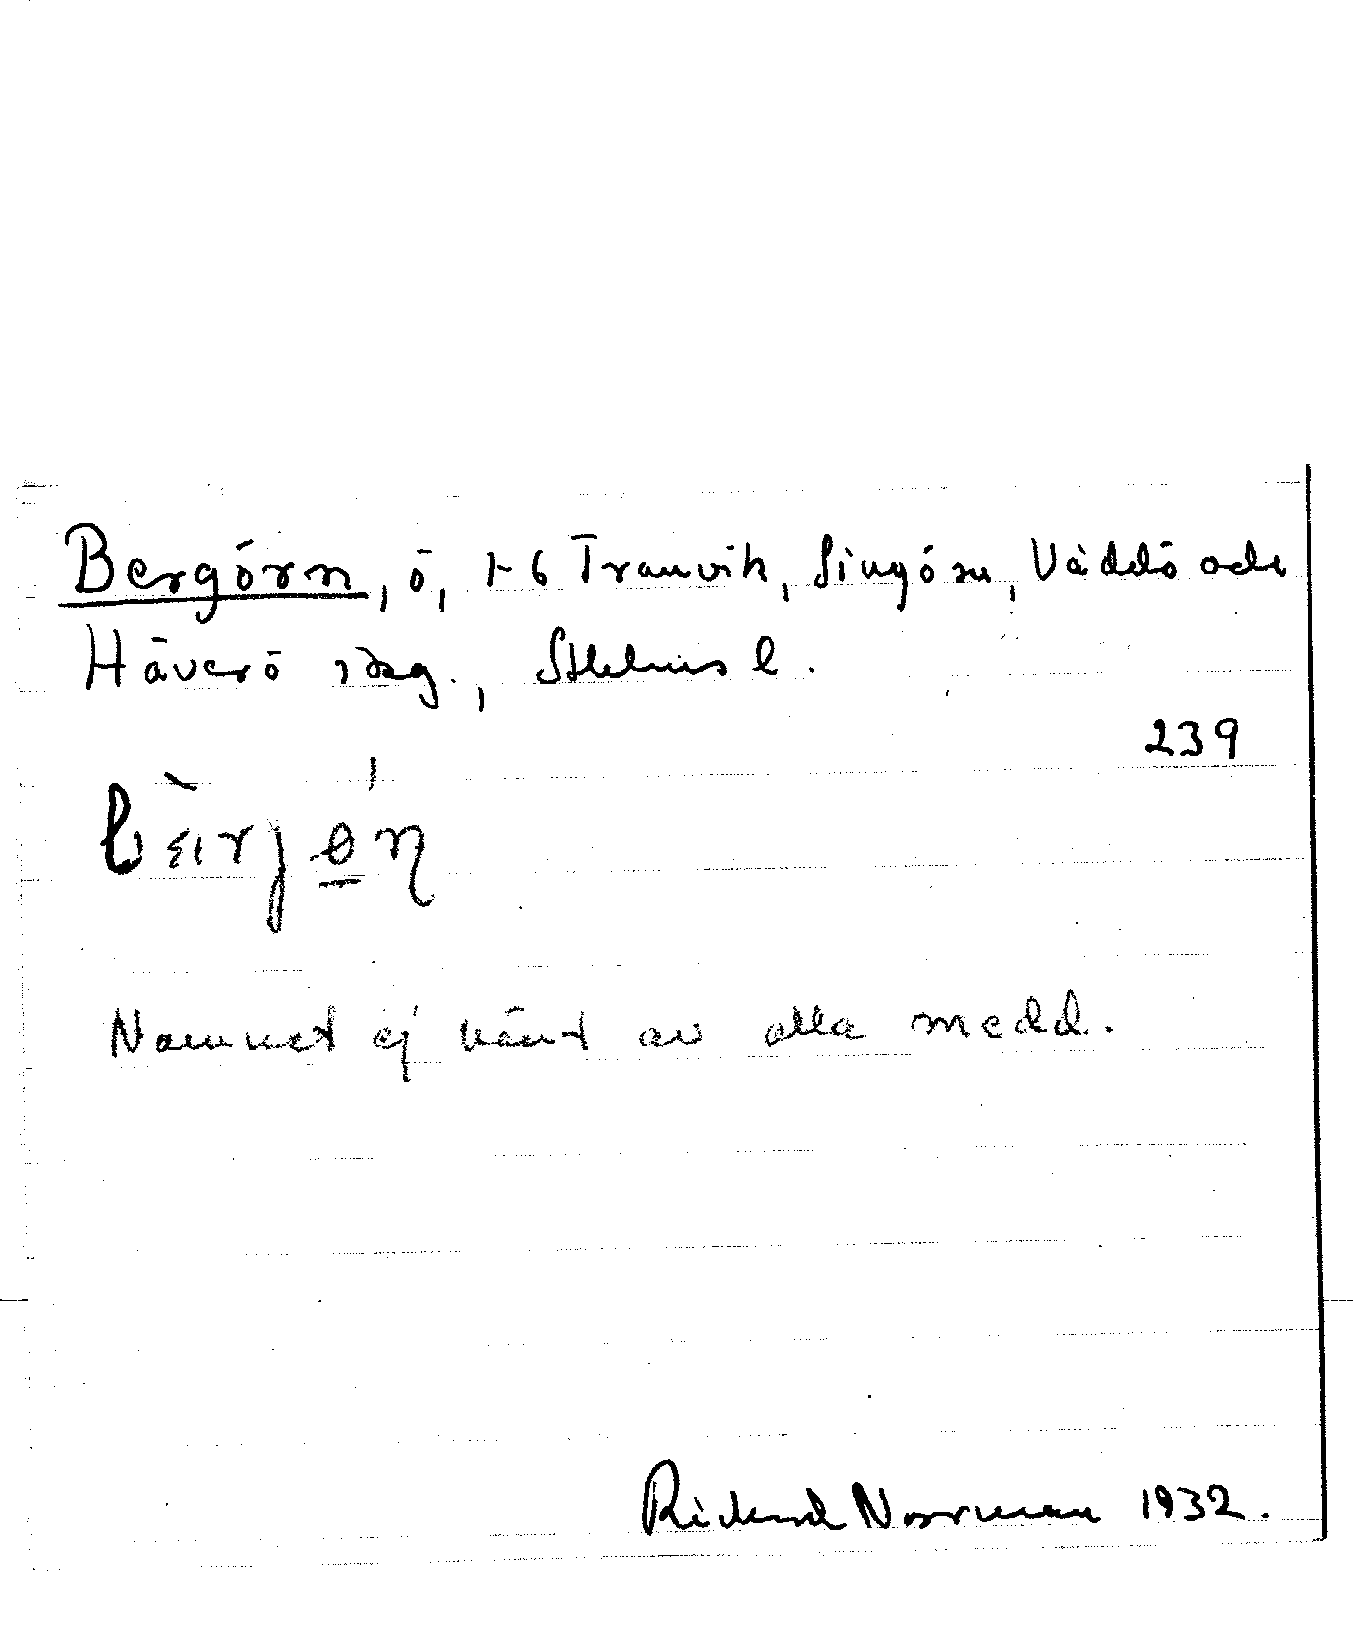 Bergörn, ö, 1-6 Tranvik, Singö sn, Väddö och
Häverö skg., Sthlms l.
239
Namnet ej känt av alla medd.
Rickard Norrman 1932.